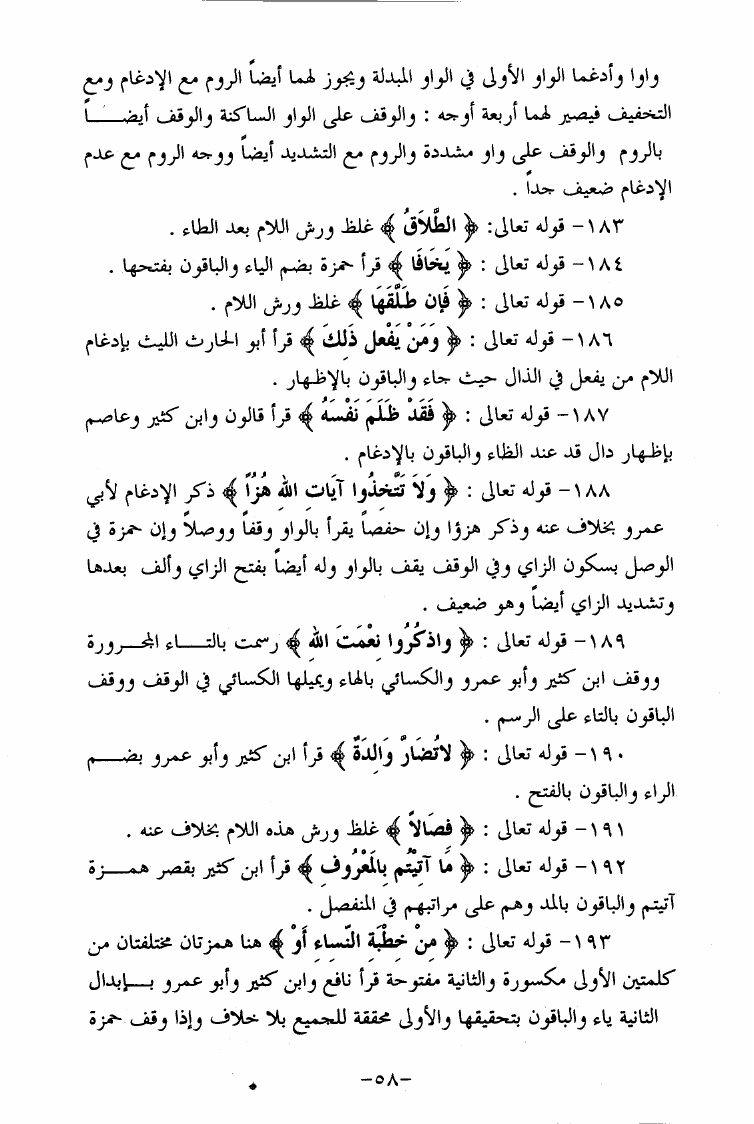 واوا وأدغما الواو الأولى في الواو المبدلة ويجوز لهما أيضاً الروم مع الإدغام ومع
التخفيف فيصير لهما أربعة أوجه : والوقف على الواو الساكنة والوقف أيضـــاً
بالروم والوقف على واو مشددة والروم مع التشديد أيضاً ووجه الروم مع عدم
الإدغام ضعيف جداً .
١٨٣- قوله تعالى: ﴿ الطَّلاَقُ ﴾ غلظ ورش اللام بعد الطاء .
١٨٤- قوله تعالى : ﴿ يَخَافَا ﴾ قرأ حمزة بضم الياء والباقون بفتحها .
١٨٥- قوله تعالى : ﴿ فَإِن طَلَّقَهَا ﴾ غلظ ورش اللام .
١٨٦- قوله تعالى : ﴿ وَمَنْ يَفْعل ذَلِكَ ﴾ قرأ أبو الحارث الليث بإدغام
اللام من يفعل في الذال حيث جاء والباقون بالإظهار .
١٨٧- قوله تعالى : ﴿ فَقَدْ ظَلَمَ نَفْسَهُ ﴾ قرأ قالون وابن كثير وعاصم
بإظهار دال قد عند الظاء والباقون بالإدغام .
١٨٨- قوله تعالى : ﴿ وَلاَ تَتَّخِذُوا آيَاتِ الله هُزُاً ﴾ ذكر الإدغام لأبي
عمرو بخلاف عنه وذكر هزؤا وإن حفصاً يقرأ بالواو وقفاً ووصلاً وإن حمزة في
الوصل بسكون الزاي وفي الوقف يقف بالواو وله أيضاً بفتح الزاي وألف بعدها
وتشديد الزاي أيضاً وهو ضعيف .
١٨٩- قوله تعالى : ﴿ واذكُرُوا نِعْمَتَ اللهِ ﴾ رسمت بالتـــاء المجـــرورة
ووقف ابن كثير وأبو عمرو والكسائي بالهاء ويميلها الكسائي في الوقف ووقف
الباقون بالتاء على الرسم .
١٩٠- قوله تعالى : ﴿ لاتُضَارَّ وَالِدَةٌ ﴾ قرأ ابن كثير وأبو عمرو بضـــم
الراء والباقون بالفتح .
١٩١- قوله تعالى : ﴿ فِصَالاً ﴾ غلظ ورش هذه اللام بخلاف عنه .
١٩٢- قوله تعالى : ﴿ مَا آتَيْتُم بِالمَعْرُوفِ ﴾ قرأ ابن كثير بقصر همـــزة
آتيتم والباقون بالمد وهم على مراتبهم في المنفصل .
١٩٣- قوله تعالى : ﴿ مِنْ خِطْبَةِ النِّساءِ أَوْ ﴾ هنا همزتان مختلفتان من
كلمتين الأولى مكسورة والثانية مفتوحة قرأ نافع وابن كثير وأبو عمرو بـــإبدال
الثانية ياء والباقون بتحقيقها والأولى محققة للجميع بلا خلاف وإذا وقف حمزة
-٥٨-